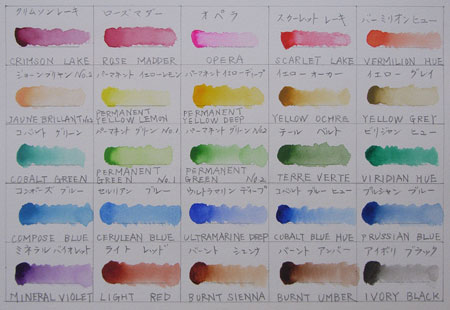 クリムソン レーキ
ローズ マダー
オペラ
スカーレット レーキ
バーミリオン ヒュー
CRIMSON LAKE
ROSE MADDER
OPERA
SCARLET LAKE
VERMILION HUE
ジョーン ブリヤン No.2
パーマネント イエローレモン
パーマネント イエローディープ
イエロー オーカー
イエロー グレイ
JAUNE BRILLANT No.2
PERMANENT
YELLOW LEMON
PERMANENT
YELLOW DEEP
YELLOW OCHRE
YELLOW GREY
コバルト グリーン
パーマネント グリーン No.1
パーマネント グリーン No.2
テール ベルト
ビリジャン ヒュー
COBALT GREEN
PERMANENT
GREEN No.1
PERMANENT
GREEN No.2
TERRE VERTE
VIRIDIAN HUE
コンポーズ ブルー
セルリアン ブルー
ウルトラマリン ディープ
コバルト ブルー ヒュー
プルシャン ブルー
COMPOSE BLUE
CERULEAN BLUE
ULTRAMARINE DEEP
COBALT BLUE HUE
PRUSSIAN BLUE
ミネラル バイオレット
ライト レッド
バーント シェンナ
バーント アンバー
アイボリ ブラック
MINERAL VIOLET
LIGHT RED
BURNT SIENNA
BURNT UMBER
IVORY BLACK